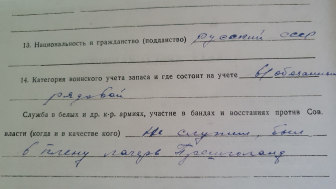 13. Национальность и гражданство (подданство) русский ссср
14. Категория воинского учета запаса и где состоит на учете в/обязанный
рядовой
Служба в белых и др. к-р. армиях, участие в бандах и восстаниях против Сов.
власти (когда и в качестве кого) Не служил, был
в плену лагерь